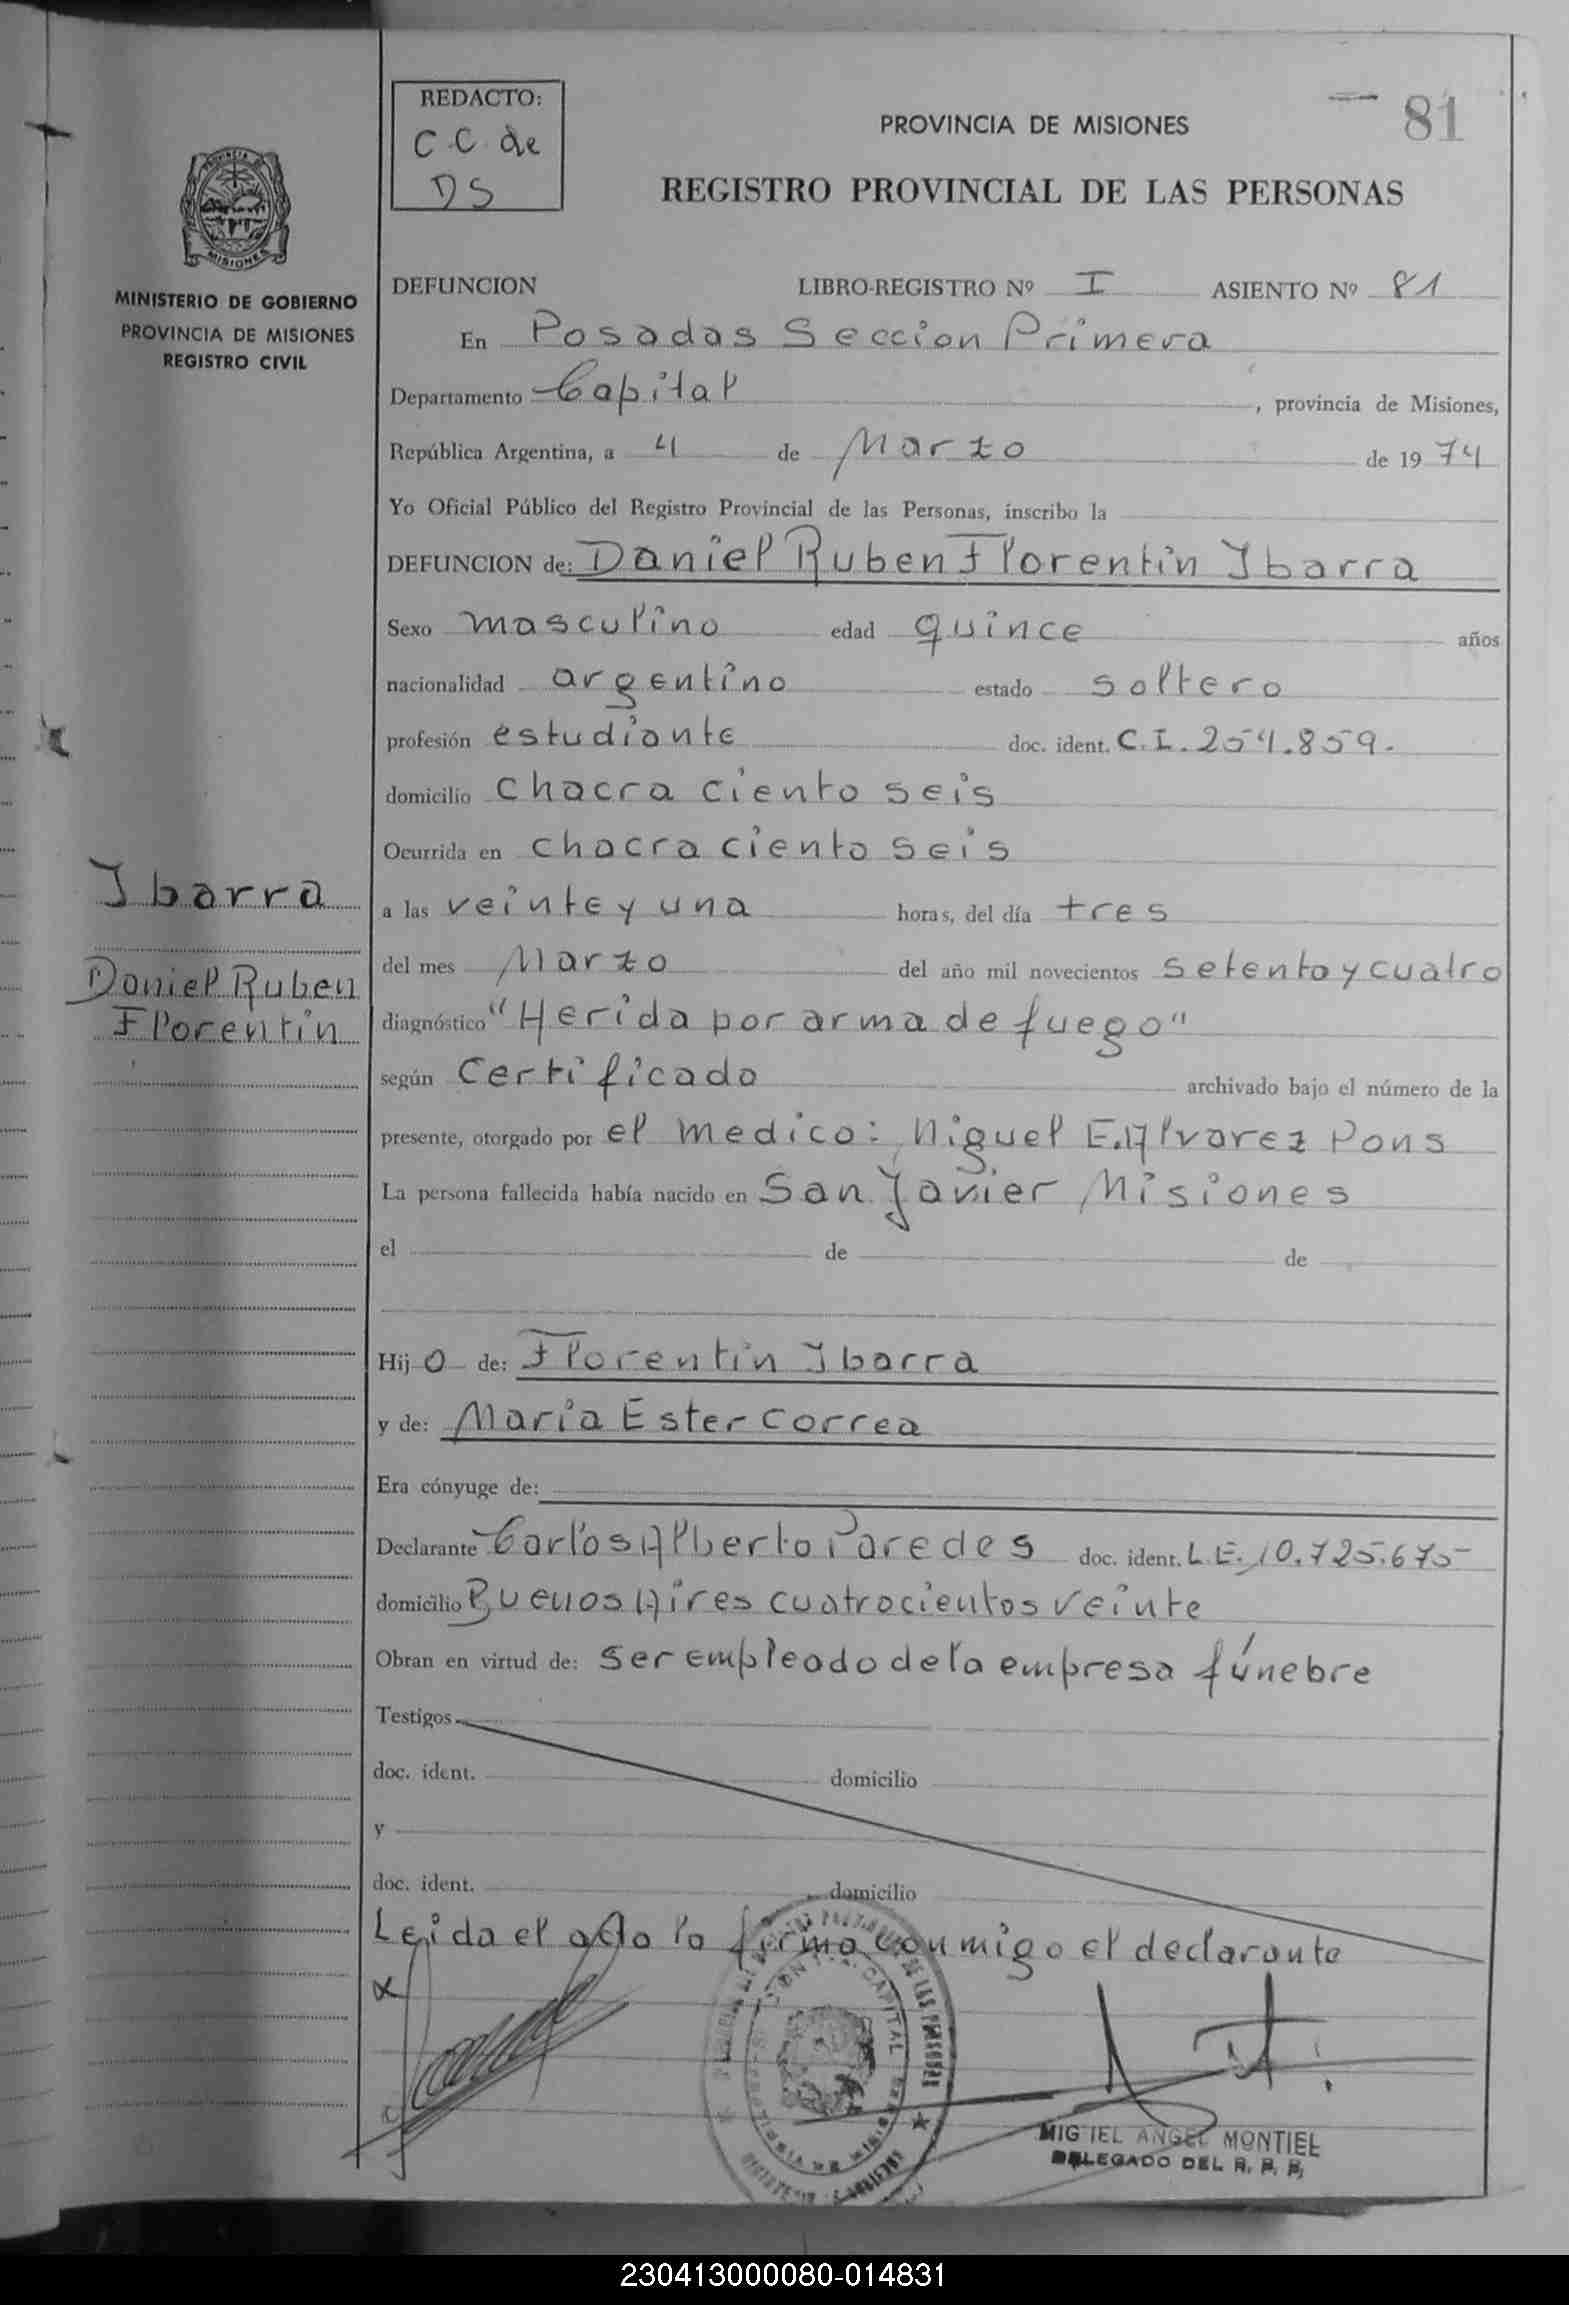 REDACTO:
C.C. de
DS
PROVINCIA DE MISIONES
81
REGISTRO PROVINCIAL DE LAS PERSONAS
MISIONES
MINISTERIO DE GOBIERNO
PROVINCIA DE MISIONES
REGISTRO CIVIL
DEFUNCION LIBRO-REGISTRO Nº I ASIENTO Nº 81
En Posadas Seccion Primera
Departamento Capital, provincia de Misiones,
República Argentina, a 4 de Marzo de 1974
Yo Oficial Público del Registro Provincial de las Personas, inscribo la
DEFUNCION de: Daniel Ruben Florentin Ibarra
Sexo masculino edad quince años
nacionalidad argentino estado soltero
profesión estudiante doc. ident. C.I. 254.859.
domicilio chacra ciento seis
Ocurrida en chacra ciento seis
Ibarra
Daniel Ruben
Florentin
a las veinte y una horas, del día tres
del mes Marzo del año mil novecientos setenta y cuatro
diagnóstico "Herida por arma de fuego"
según Certificado archivado bajo el número de la
presente, otorgado por el medico: Miguel E. Alvarez Pons
La persona fallecida había nacido en San Javier Misiones
el de de
Hijo de: Florentin Ibarra
y de: Maria Ester Correa
Era cónyuge de:
Declarante Carlos Alberto Paredes doc. ident. L.E. 10.725.675
domicilio Buenos Aires cuatrocientos veinte
Obran en virtud de: ser empleado de la empresa fúnebre
Testigos
doc. ident. domicilio
y
doc. ident. domicilio
Leida el acta la firma conmigo el declarante
x
MIGUEL ANGEL MONTIEL
DELEGADO DEL R. P. P.
230413000080-014831